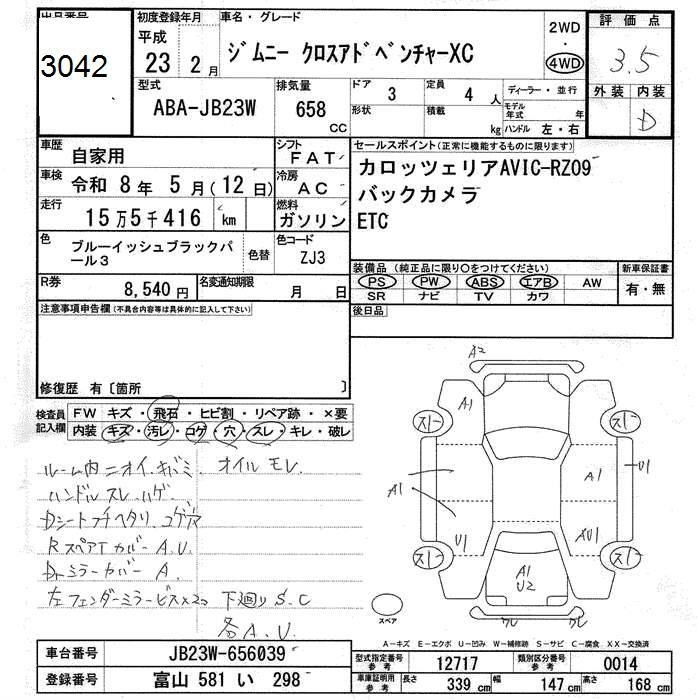 出品番号
3042
初度登録年月
平成
23 2 月
車名・グレード
ジムニー クロスアドベンチャーXC
2WD
・
4WD
評価点
3.5
外装 内装
D
型式
ABA-JB23W
排気量
658
CC
ドア
3
形状
定員
4 人
積載
kg
ディーラー・並行
モデル
年式 年
ハンドル 左・右
車歴
自家用
シフト
FAT
車検
令和 8 年 5 月(12 日)
冷房
AC
走行
15万5千416 km
燃料
ガソリン
色
ブルーイッシュブラックパ
ール3
色替
色コード
ZJ3
R券
8,540 円
名変通知期限
月 日
セールスポイント(正常に機能するものに限ります)
カロッツェリアAVIC-RZ09
バックカメラ
ETC
装備品(純正品に限り○をつけてください)
PS PW ABS エアB AW
SR ナビ TV カワ
新車保証書
有・無
後日品
注意事項申告欄(不具合内容等は具体的に記入して下さい)
修復歴 有〔箇所 〕
検査員
記入欄
FW キズ・飛石・ヒビ割・リペア跡・×要
内装 キズ・汚レ・コゲ・穴・スレ・キレ・破レ
ルーム内ニオイ.キバミ. オイルモレ
ハンドルスレ.ハゲ.
Dシートフチヘタリ.コゲ穴
RスペアTカバーA.U.
Drミラーカバー A.
左フェンダーミラービス×2コ 下廻りS.C
各A.U.
A2
A1
スリ
スリ
A1
U1
A1
AU1
U1
スリ
スリ
A1
U2
スペア
クレ クレ
A-キズ E-エクボ U-凹み W-補修跡 S-サビ C-腐食 XX-交換済
車台番号 JB23W-656039
登録番号 富山 581 い 298
型式指定番号
参考
12717
類別区分番号
参考
0014
車庫証明用
参考
長さ 339 cm 幅 147 cm 高さ 168 cm